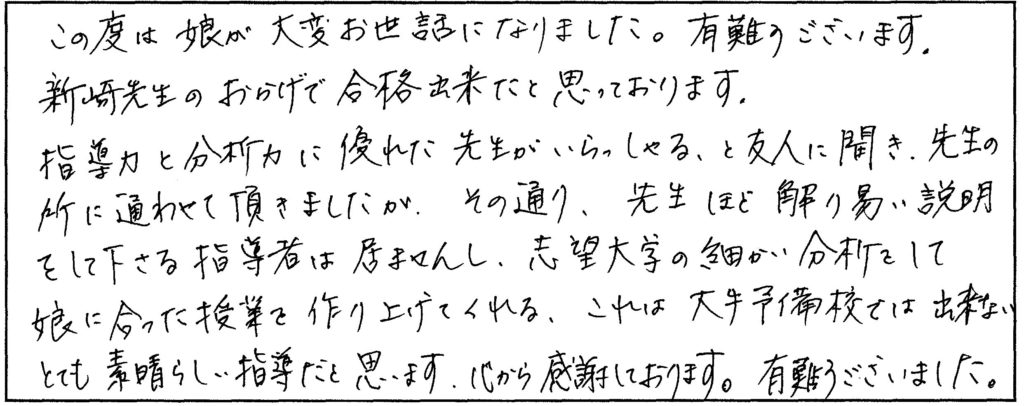 この度は娘が大変お世話になりました。有難うございます。
新崎先生のおかげで合格出来たと思っております。
指導力と分析力に優れた先生がいらっしゃる、と友人に聞き、先生の
所に通わせて頂きましたが、その通り、先生ほど解り易い説明
をして下さる指導者は居ませんし、志望大学の細かい分析をして
娘に合った授業を作り上げてくれる、これは大手予備校では出来ない
とても素晴らしい指導だと思います、心から感謝しております。有難うございました。